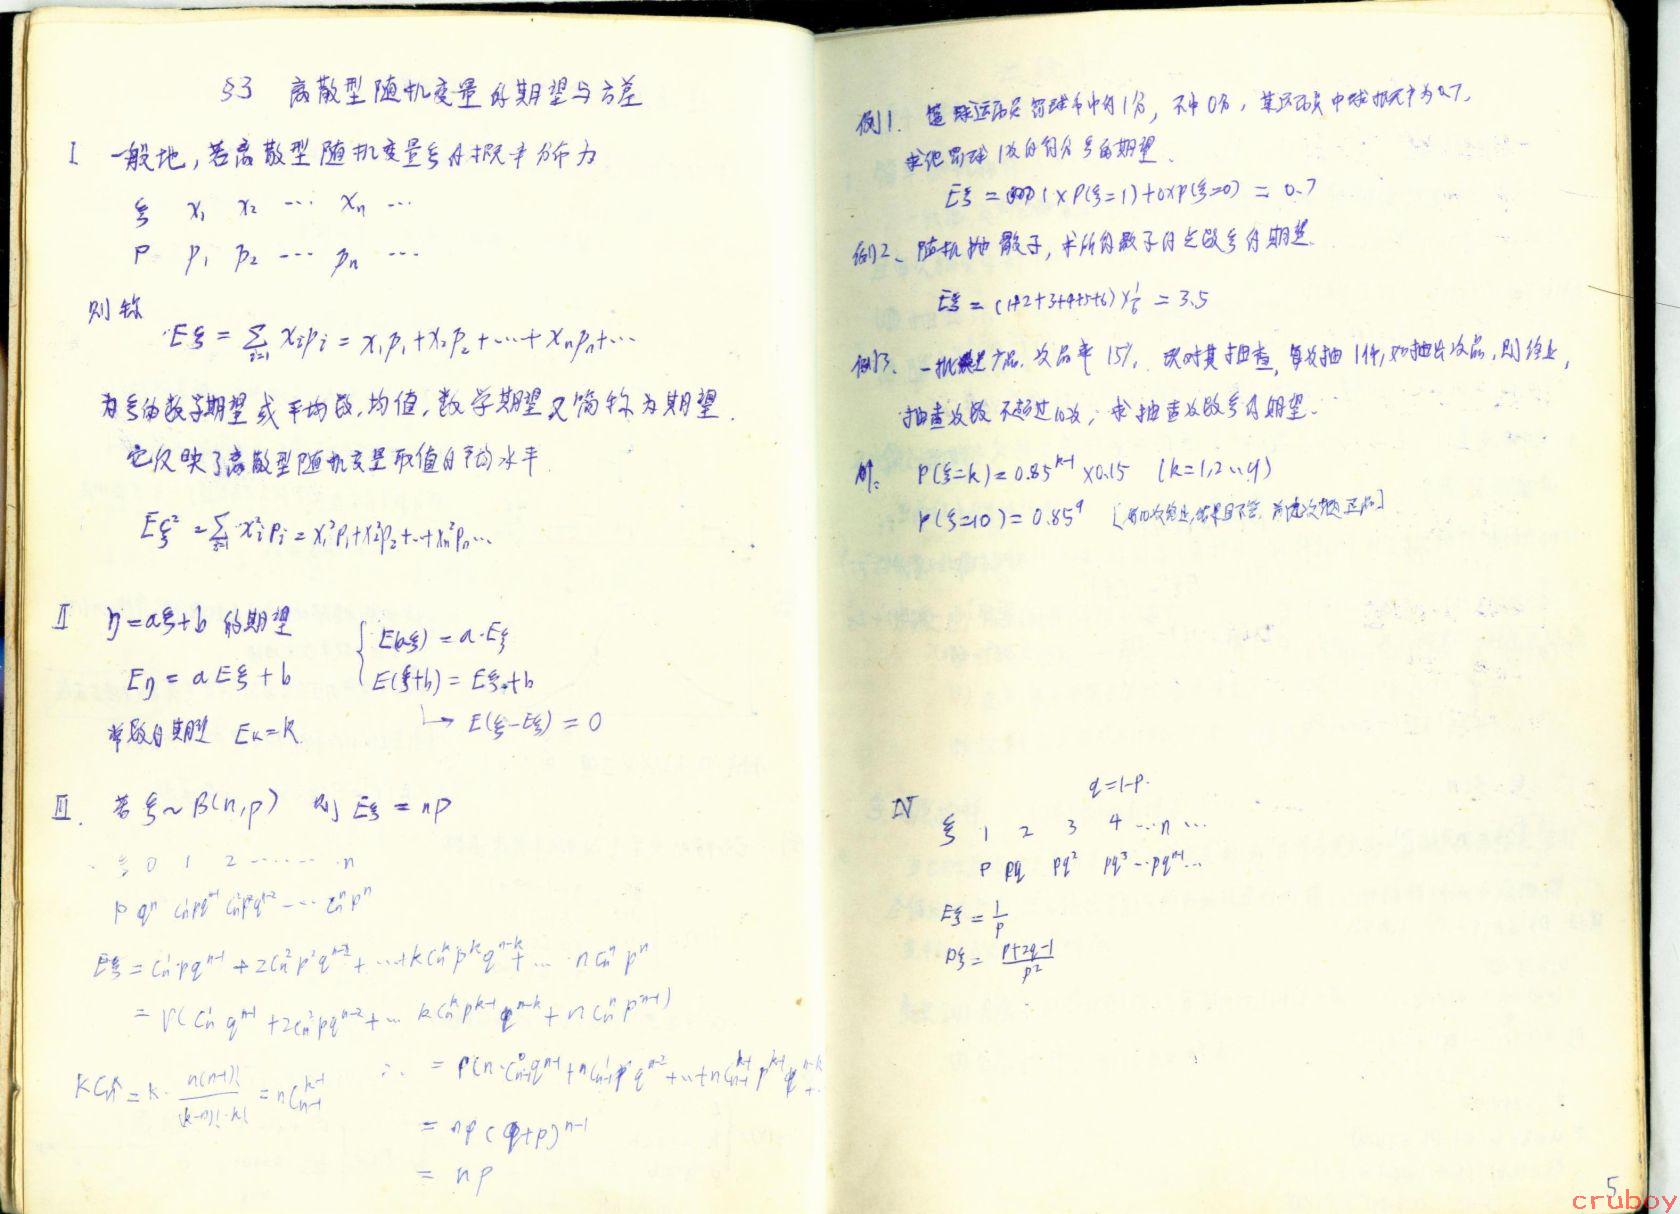 §3 离散型随机变量的期望与方差
I 一般地，若离散型随机变量ξ的概率分布为
ξ x₁ x₂ ··· xₙ ···
P p₁ p₂ ··· pₙ ···
则称
Eξ = ∑ᵢ₌₁ xᵢpᵢ = x₁p₁+x₂p₂+···+xₙpₙ+···
为ξ的数学期望或平均数,均值,数学期望又简称为期望.
它反映了离散型随机变量取值的平均水平.
Eξ² = ∑ᵢ₌₁ xᵢ²pᵢ = x₁²p₁+x₂²p₂+··+xₙ²pₙ···
II η=aξ+b 的期望
Eη = aEξ+b
常数的期望 Eₖ=k
E(aξ) = a·Eξ
E(ξ+b) = Eξ+b
↳ E(ξ-Eξ) = 0
III. 若ξ~B(n,p) 则 Eξ=np
ξ 0 1 2 ······ n
P qⁿ Cₙ¹pqⁿ⁻¹ Cₙ²p²qⁿ⁻² ··· Cₙⁿpⁿ
Eξ = Cₙ¹pqⁿ⁻¹ + 2Cₙ²p²qⁿ⁻² + ···+kCₙᵏpᵏqⁿ⁻ᵏ+ ··· nCₙⁿpⁿ
= p(Cₙ¹qⁿ⁻¹+2Cₙ²pqⁿ⁻²+··· kCₙᵏpᵏ⁻¹qⁿ⁻ᵏ+nCₙⁿpⁿ⁻¹)
kCₙᵏ = k· = nCₙ₋₁ᵏ⁻¹
∴ = p(n·Cₙ₋₁⁰qⁿ⁻¹+nCₙ₋₁¹pqⁿ⁻²+··+nCₙ₋₁ᵏ⁻¹pᵏ⁻¹qⁿ⁻ᵏ+··
= np(q+p)ⁿ⁻¹
= np
例1. 篮球运动员罚球命中得1分, 不中0分, 某运动员中球概率为0.7,
求他罚球1次的得分ξ的期望.
Eξ = 1×P(ξ=1)+0×P(ξ=0) = 0.7
例2、随机抛骰子,求所得骰子的点数ξ的期望.
Eξ = (1+2+3+4+5+6)×1/6 = 3.5
例3、一批产品,次品率15%, 现对其抽查,每次抽1件,如抽出次品,则终止,
抽查次数不超过10次,求抽查次数ξ的期望.
解: P(ξ=k)=0.85ᵏ⁻¹×0.15 (k=1,2··9)
P(ξ=10)=0.85⁹
IV
q=1-p.
ξ 1 2 3 4 ···n ···
P pq pq² pq³ ···pqⁿ⁻¹···
Eξ = 1/p
Dξ = (p+2q-1)/p²
5
cruboy